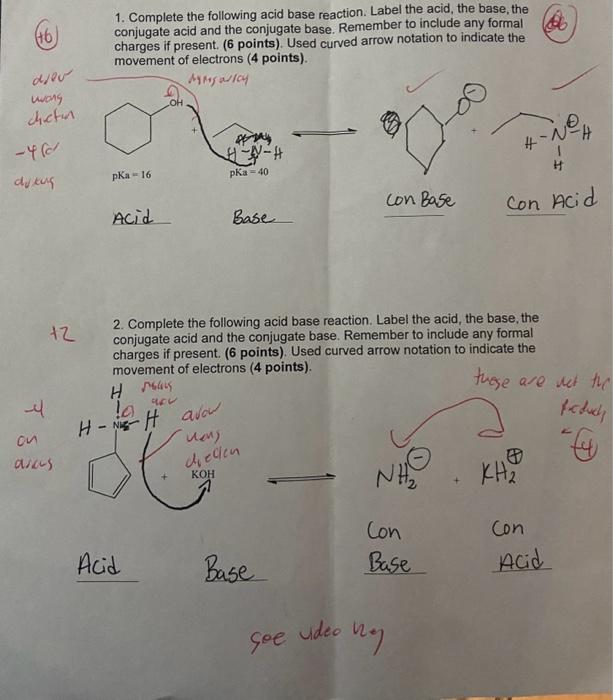 1. Complete the following acid base reaction. Label the acid, the base, the
conjugate acid and the conjugate base. Remember to include any formal
charges if present. (6 points). Used curved arrow notation to indicate the
movement of electrons (4 points).
+6
wrong
-4
OH
+
H-N-H
+
H-N-H
H
pKa = 16
pKa = 40
Acid
Base
Con Base
Con Acid
+2
2. Complete the following acid base reaction. Label the acid, the base, the
conjugate acid and the conjugate base. Remember to include any formal
charges if present. (6 points). Used curved arrow notation to indicate the
movement of electrons (4 points).
these are not the
products
-4
-4
on
H
H - N - H
arrow
wrong
direction
+
KOH
NH2 -
+
KH2 +
Acid
Base
Con
Base
Con
Acid
see video key